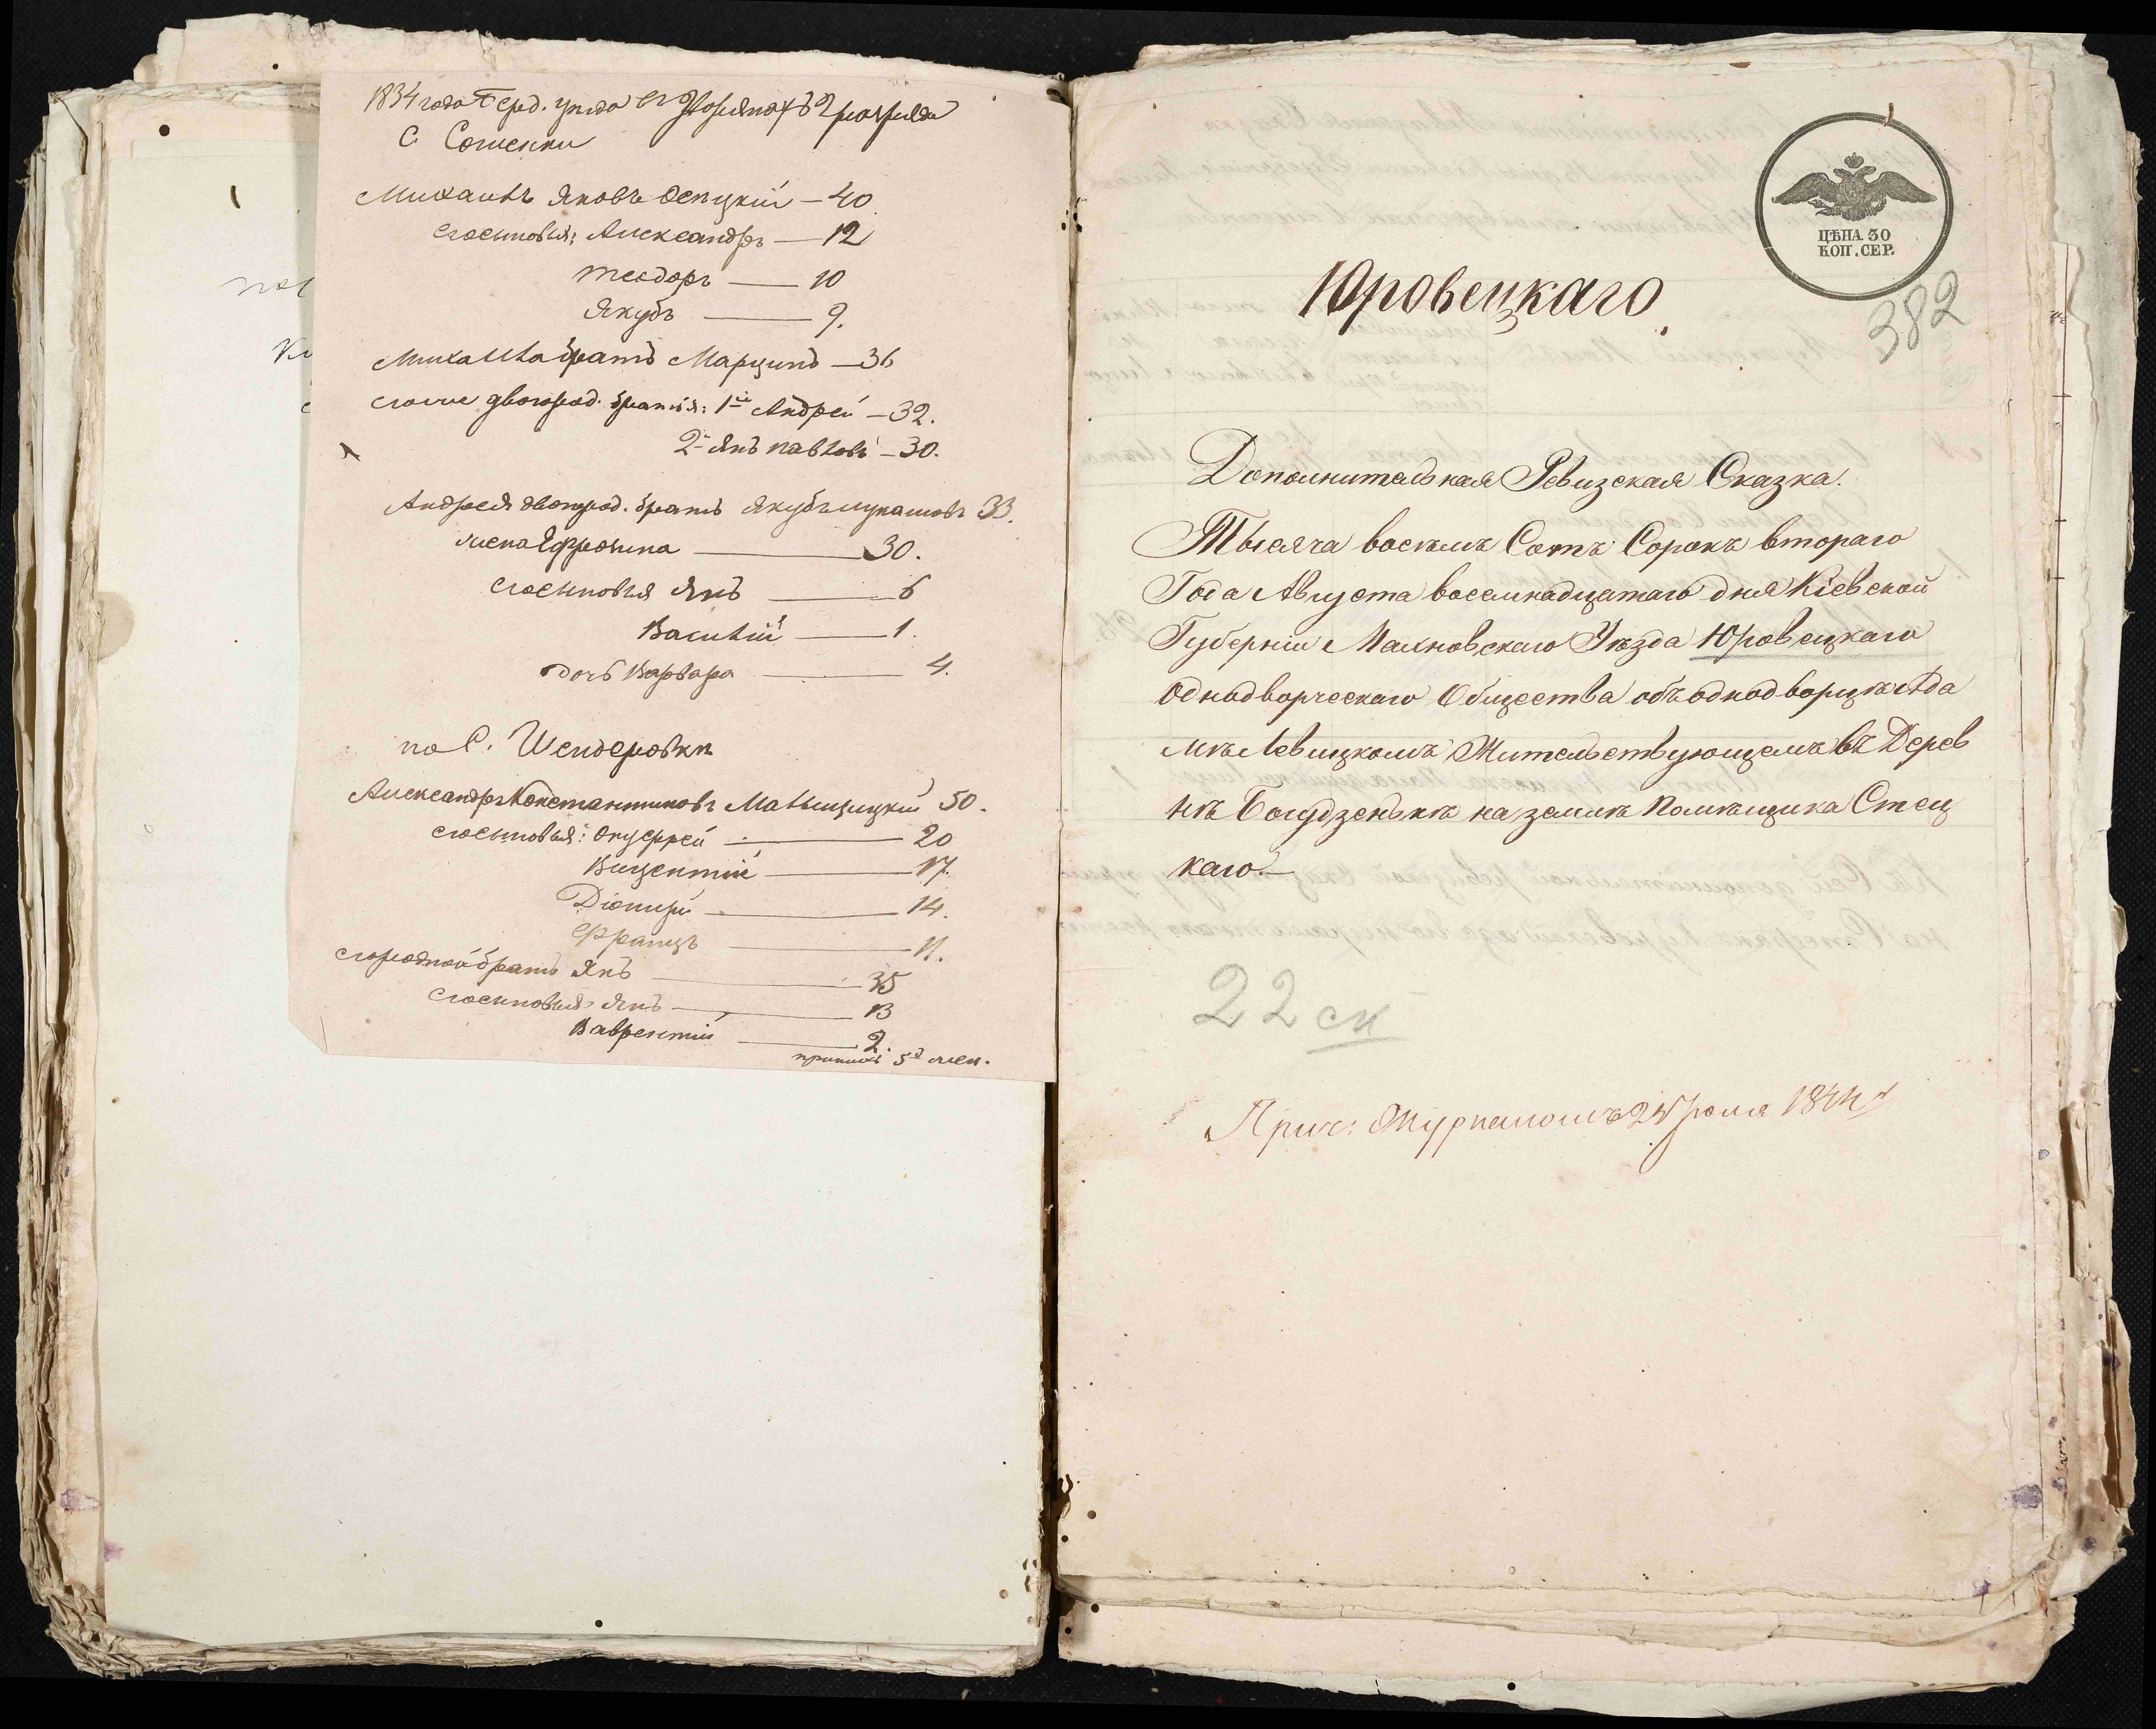 1834 года Берд. уезда въ дворянахъ 2 разряда
С. Сошенки
Михаилъ Яковъ Осецкій — 40
его сыновья: Александръ — 12
Теодоръ — 10
Якубъ — 9.
Михаила братъ Марцинъ — 36
его же двоюрод. братья: 1й Андрей — 32.
2й Янъ Павловъ — 30.
Андрея двоюрод. братъ Якубъ Лукашовъ 33.
жена Ефрозина — 30.
его сыновья Янъ — 6
Василій — 1.
дочь Варвара — 4.
по С. Шендеровки
Александръ Константиновъ 50.
его сыновья: Онуфрей — 20
Вицентій — 17.
Діонизій — 14.
Францъ — 11.
его родной братъ Янъ — 35
его сыновья Янъ — 13
Лаврентій — 2.
5й
Юровецкаго
ЦѢНА 30
КОП. СЕР.
382
Дополнительная Ревизская Сказка.
Тысяча восемь Сотъ Сорокъ втораго
Года Августа восемнадцатаго дня Кіевской
Губерніи Махновскаго Уѣзда Юровецкаго
Однодворческаго Общества объ однодворцѣ Ада
мѣ Левицкомъ Жительствующемъ въ Дерев
нѣ на землѣ помѣщика Стец
каго.—
22 ск
1844